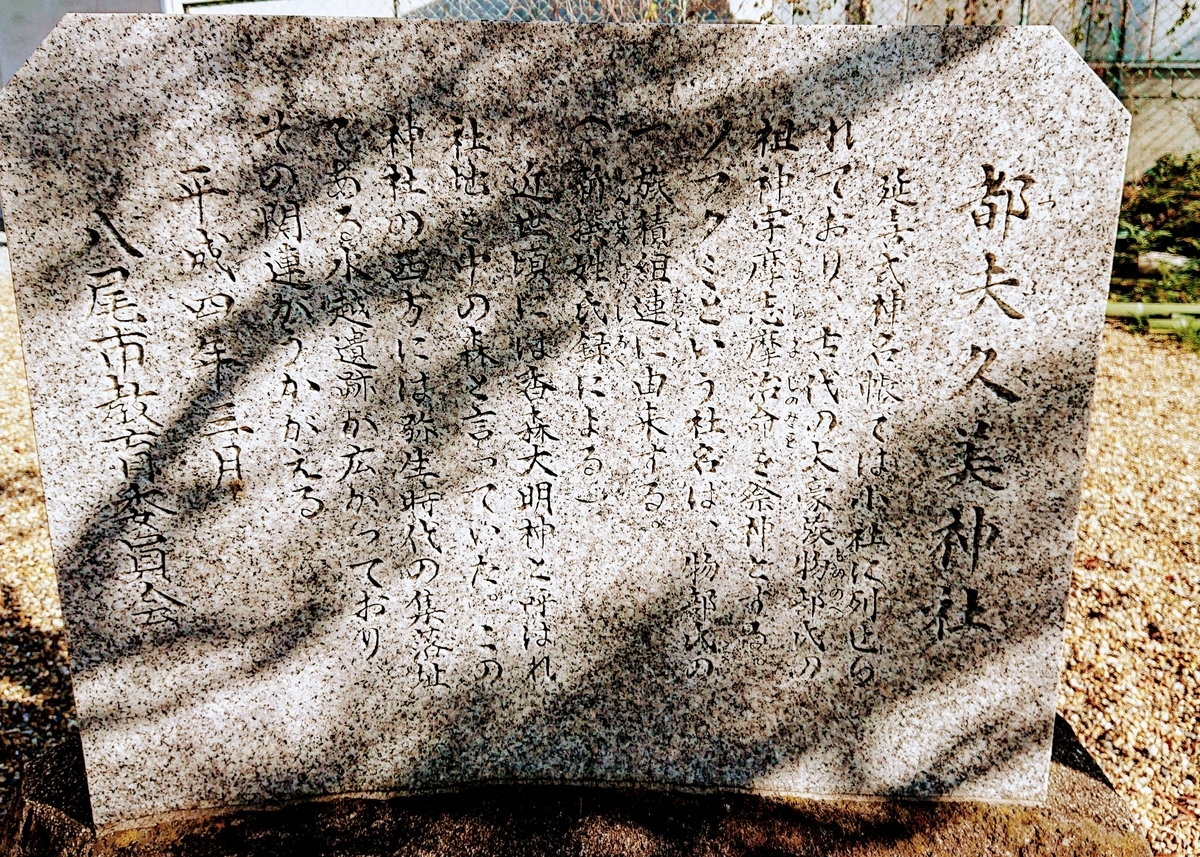 都夫久美神社
延喜式神名帳では小社に列せら
れており、古代の大豪族物部氏の
祖神宇摩志摩治命を祭神とする。
ツフクミという社名は、物部氏の
一族積組連に由来する。
(新撰姓氏録による)
近世頃には香森大明神と呼ばれ
社地を中の森と言っていた。この
神社の西方には弥生時代の集落址
である水越遺跡が広がっており
その関連がうかがえる
平成四年三月
八尾市教育委員会